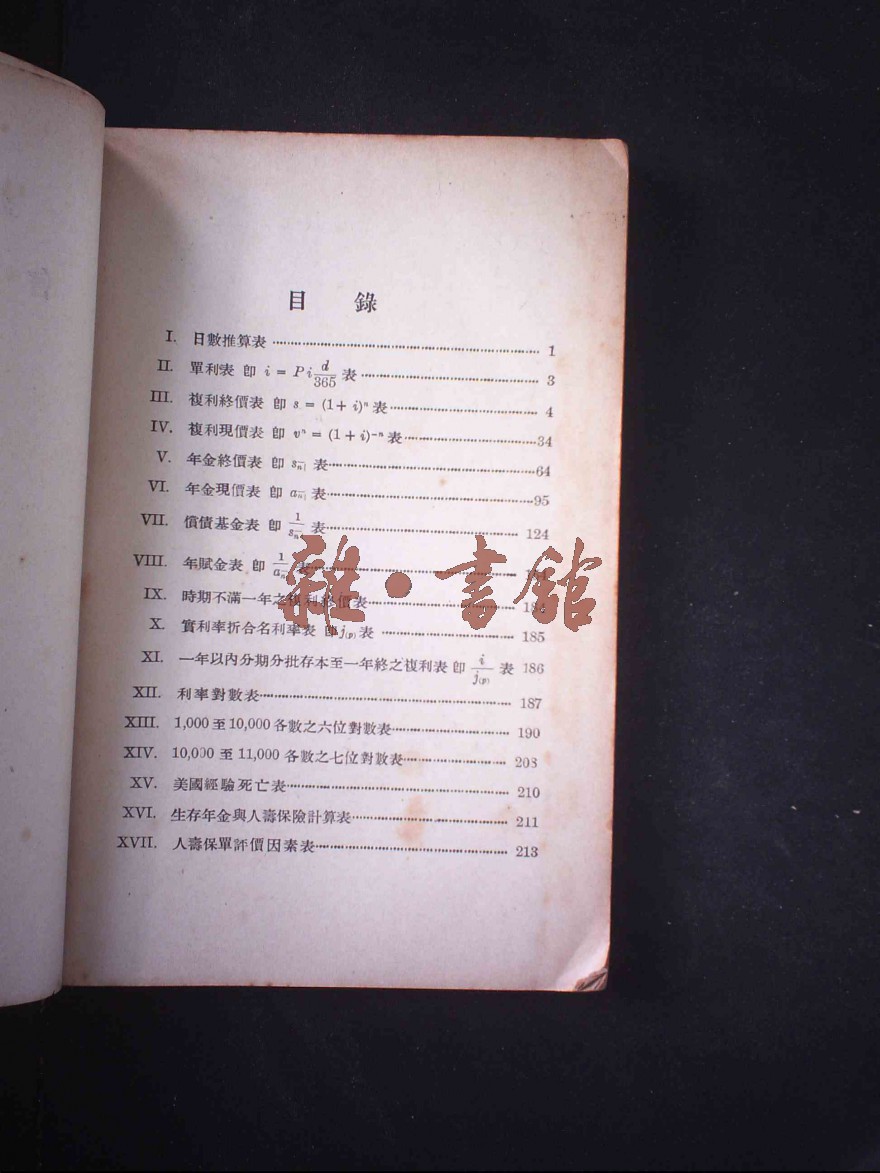 目 錄
I. 日數推算表 1
II. 單利表 即 i = Pi d/365 表 3
III. 複利終價表 即 s = (1 + i)ⁿ 表 4
IV. 複利現價表 即 vⁿ = (1 + i)⁻ⁿ 表 34
V. 年金終價表 即 s‾n| 表 64
VI. 年金現價表 即 a‾n| 表 95
VII. 償債基金表 即 1/s‾n| 表 124
VIII. 年賦金表 即 1/a‾n| 表
IX. 時期不滿一年之複利終價表 184
X. 實利率折合名利率表 即 j(p) 表 185
XI. 一年以內分期分批存本至一年終之複利表 即 i/j(p) 表 186
XII. 利率對數表 187
XIII. 1,000 至 10,000 各數之六位對數表 190
XIV. 10,000 至 11,000 各數之七位對數表 208
XV. 美國經驗死亡表 210
XVI. 生存年金與人壽保險計算表 211
XVII. 人壽保單評價因素表 213
雜·書館